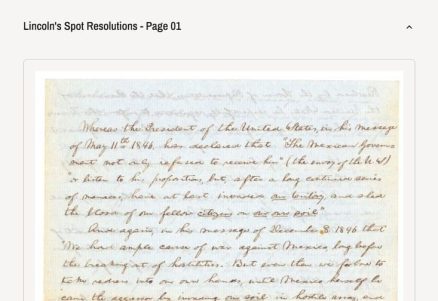 Lincoln's Spot Resolutions - Page 01
Whereas the President of the United States, in his message
of May 11th 1846, has declared that "The Mexican Govern-
ment not only refused to receive him" (the envoy of the U.S.)
"or listen to his propositions, but, after a long continued series
of menaces, have at last invaded our territory, and shed
the blood of our fellow citizens on our own soil"
And again, in his message of December 8, 1846 that
"We had ample cause of war against Mexico, long before
the breaking out of hostilities. But even then we forbore to
take redress into our own hands, until Mexico herself be-
came the aggressor by invading our soil in hostile array, and